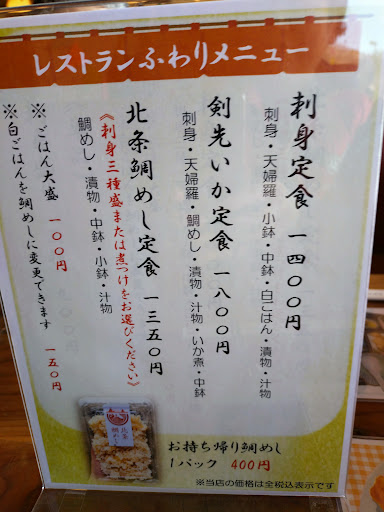 レストランふわりメニュー
刺身定食 一四〇〇円
刺身・天婦羅・小鉢・中鉢・白ごはん・漬物・汁物
剣先いか定食 一八〇〇円
刺身・天婦羅・鯛めし・漬物・汁物・いか煮・中鉢
北条鯛めし定食 一三五〇円
《刺身三種盛または煮つけをお選びください》
鯛めし・漬物・中鉢・小鉢・汁物
※ごはん大盛 一〇〇円
※白ごはんを鯛めしに変更できます 一五〇円
北条鯛めし
お持ち帰り鯛めし
1パック 400円
※当店の価格は全税込表示です